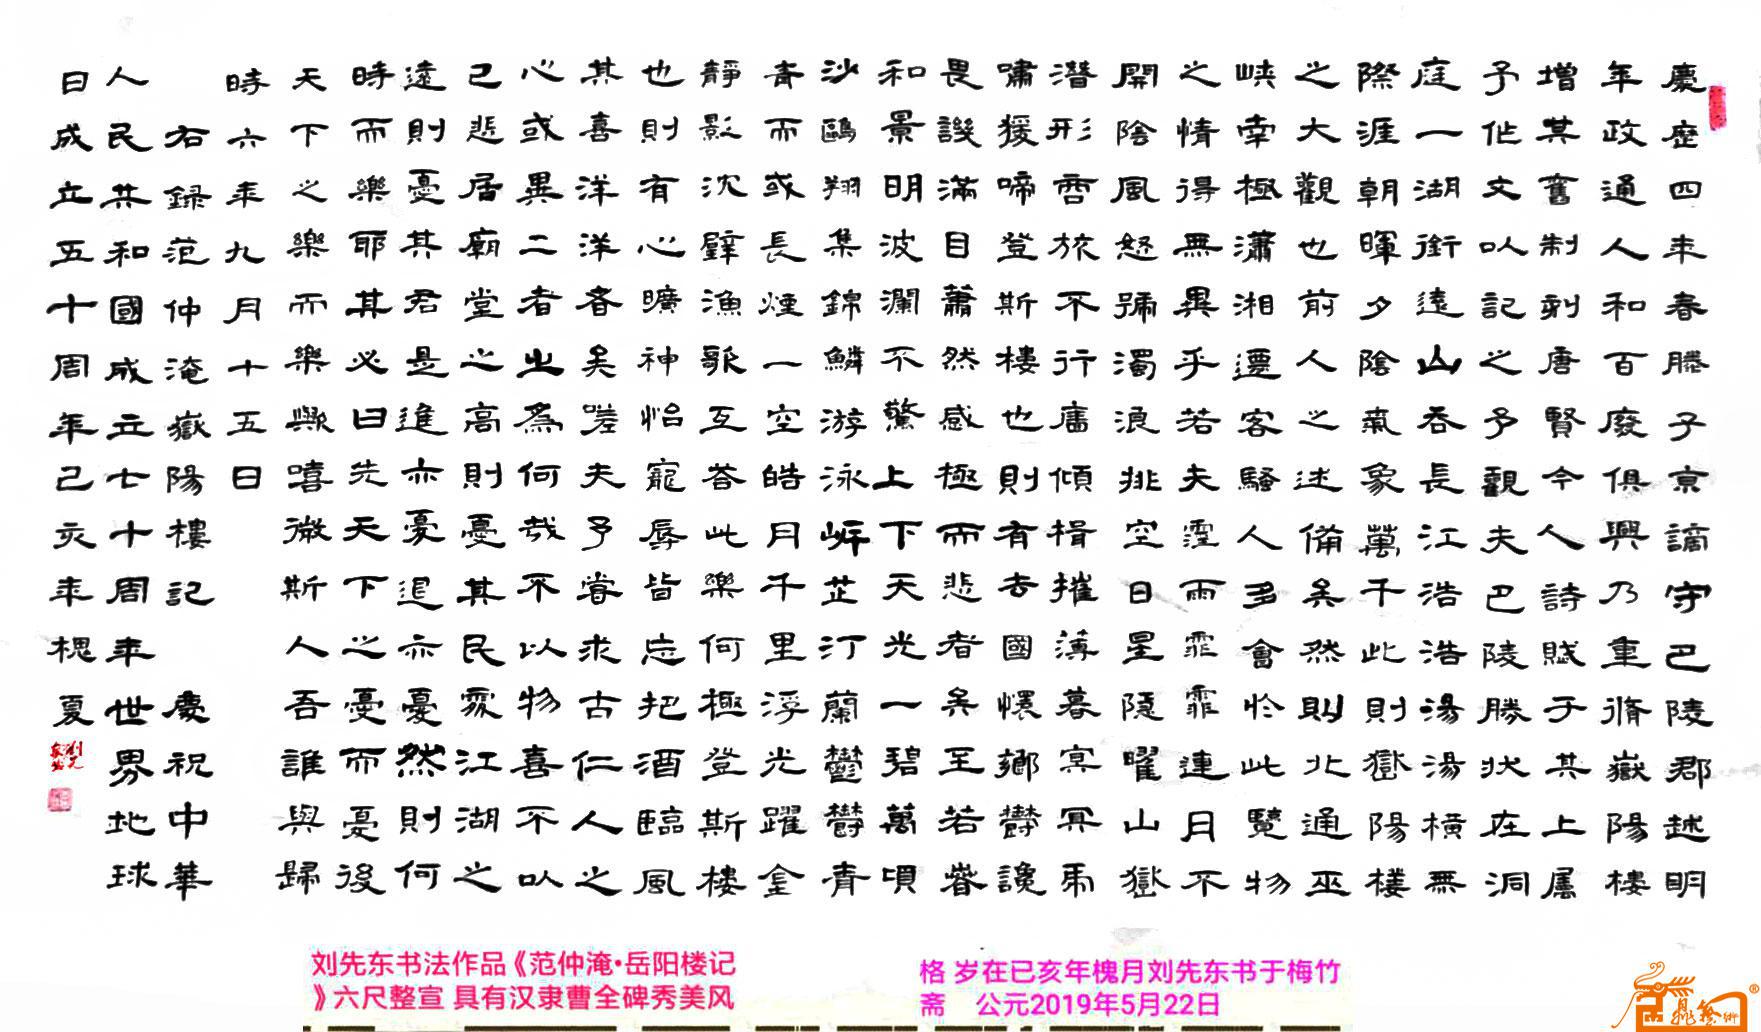 慶歷四年春滕子京謫守巴陵郡越明
年政通人和百廢俱興乃重脩嶽陽樓
增其舊制刻唐賢今人詩賦于其上属
予作文以記之予觀夫巴陵勝状在洞
庭一湖銜遠山吞長江浩浩湯湯橫無
際涯朝暉夕陰氣象萬千此則嶽陽樓
之大觀也前人之述備矣然則北通巫
峽南極瀟湘遷客騷人多會於此覽物
之情得無異乎若夫霪雨霏霏連月不
開陰風怒號濁浪排空日星隱曜山嶽
潛形商旅不行檣傾楫摧薄暮冥冥虎
嘯猨啼登斯樓也則有去國懷鄉鬱讒
畏譏滿目蕭然感極而悲者矣至若春
和景明波瀾不驚上下天光一碧萬頃
沙鷗翔集錦鱗游泳岸芷汀蘭鬱鬱青
青而或長煙一空皓月千里浮光躍金
靜影沈璧漁歌互答此樂何極登斯樓
也則有心曠神怡寵辱皆忘把酒臨風
其喜洋洋者矣嗟夫予嘗求古仁人之
心或異二者之為何哉不以物喜不以
己悲居廟堂之高則憂其民處江湖之
遠則憂其君是進亦憂退亦憂然則何
時而樂耶其必曰先天下之憂而憂後
天下之樂而樂歟嘻微斯人吾誰與歸
時六年九月十五日
右録范仲淹嶽陽樓記 慶祝中華
人民共和國成立七十周年世界地球
日成立五十周年己亥年槐夏
刘先东书法作品《范仲淹•岳阳楼记
》六尺整宣 具有汉隶曹全碑秀美风
格 岁在已亥年槐月刘先东书于梅竹
斋 公元2019年5月22日